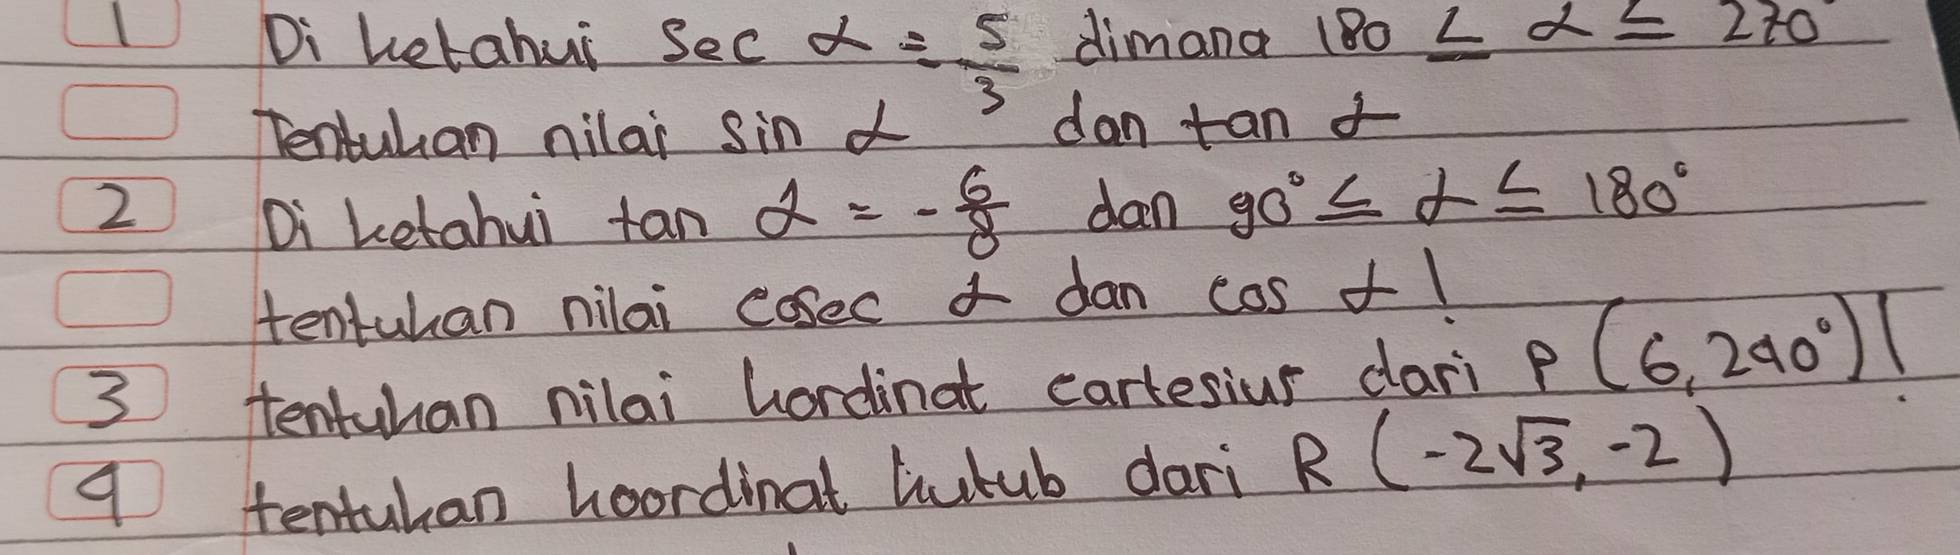 1 Di ketahui Sec α = 5/3 dimana 180 ≤ α ≤ 270°
Tentukan nilai Sin α dan tan α
2 Di ketahui tan α = -6/8 dan 90° ≤ α ≤ 180°
tentukan nilai cosec α dan cos α!
3 tentukan nilai kordinat cartesius dari P (6, 240°)!
4 tentukan koordinat kutub dari R (-2√3, -2)